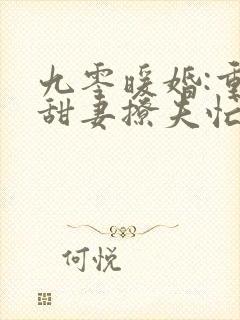 九零暖婚:重
甜妻撩夫忙
何悦